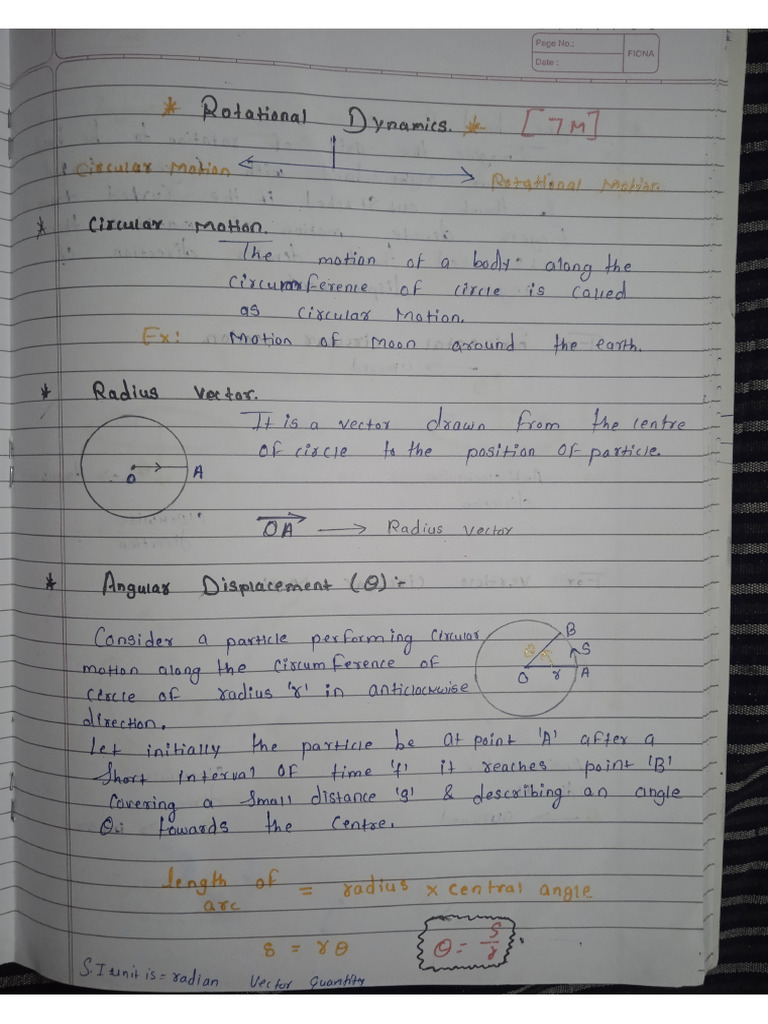 Page No.:
Date :
FIONA
* Rotational Dynamics. * [7M]
Circular Motion
Rotational Motion.
* Circular Motion.
The motion of a body along the
circumference of circle is called
as Circular Motion.
Ex: Motion of Moon around the earth.
* Radius Vector.
It is a vector drawn from the centre
of circle to the position of particle.
O A
OA → Radius Vector
* Angular Displacement (θ) :-
Consider a particle performing Circular
motion along the circumference of
circle of radius 'r' in anticlockwise
direction.
B
S
θ
O r A
Let initially the particle be at point 'A' after a
short interval of time 't' it reaches point 'B'
covering a small distance 's' & describing an angle
θ. towards the centre.
length of arc = radius x central angle
s = rθ
θ = S/r
S.I unit is = radian Vector Quantity